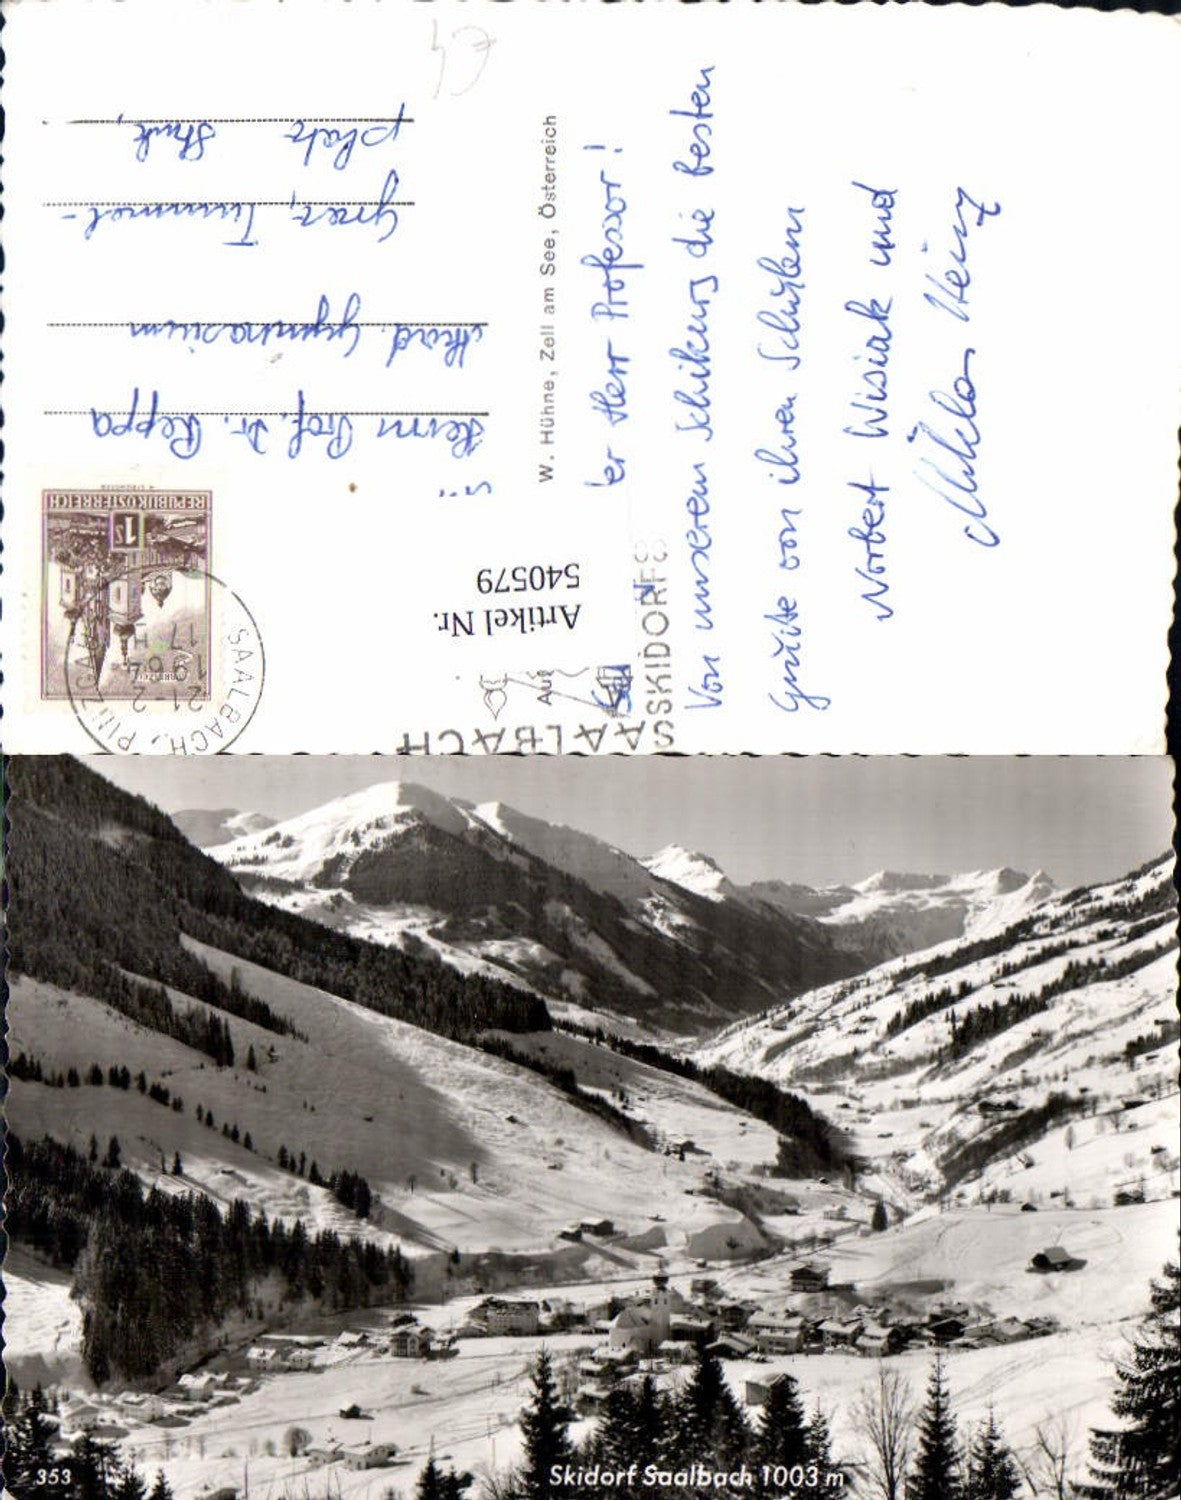 Herrn Prof. Dr. Reppa
Akad. Gymnasium
Graz, Tummel-
platz
REPUBLIK ÖSTERREICH
1S
SAALBACH, PINZGAU
21-2
1964
17
W. Hühne, Zell am See, Österreich
Artikel Nr.
540579
SAALBACH
SKIDORF
Herr Professor!
Von unserem Schikurs die besten
Grüße von ihren Schülern
Norbert Wisiak und
Niklas Heinz
353
Skidorf Saalbach 1003 m